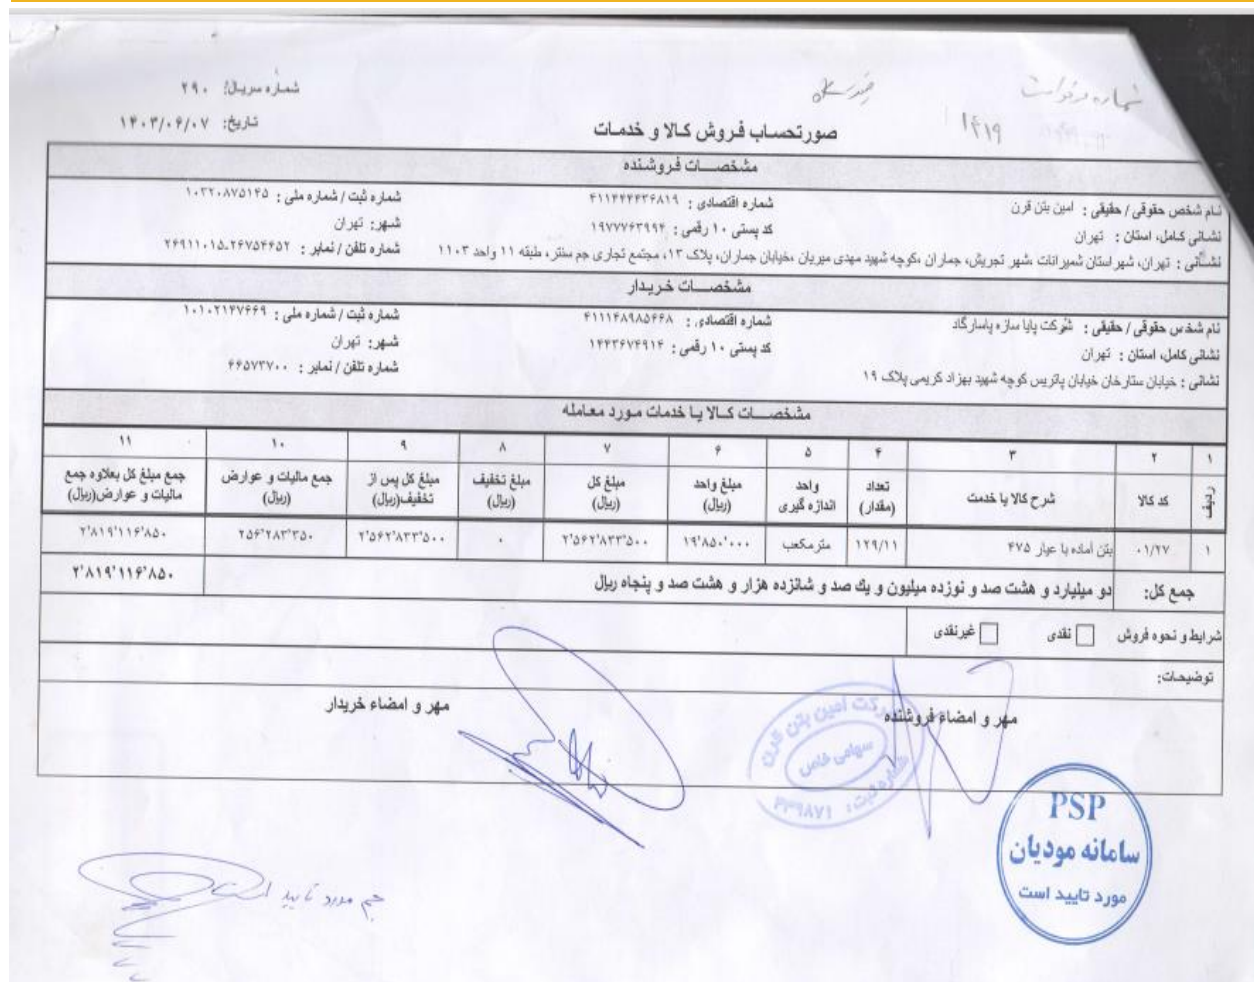 شماره درخواست
۱۴۱۹
شماره سریال: ۲۹۰
تاریخ: ۱۴۰۳/۰۶/۰۷
صورتحساب فروش کالا و خدمات
مشخصات فروشنده
نام شخص حقوقی / حقیقی : امین بتن قرن
شماره اقتصادی : ۴۱۱۴۴۴۴۳۶۸۱۹
شماره ثبت / شماره ملی : ۱۰۳۲۰۸۷۵۱۴۵
نشانی کامل، استان : تهران
کد پستی ۱۰ رقمی : ۱۹۷۷۷۶۳۹۹۴
شهر: تهران
نشانی : تهران، شهرستان شمیرانات ،شهر تجریش، جماران ،کوچه شهید مهدی میریان ،خیابان جماران، پلاک ۱۳، مجتمع تجاری جم سنتر، طبقه ۱۱ واحد ۱۱۰۳
شماره تلفن / نمابر : ۲۶۹۱۱۰۱۵-۲۶۷۵۴۶۵۲
مشخصات خریدار
نام شخص حقوقی / حقیقی : شرکت پایا سازه پاسارگاد
شماره اقتصادی : ۴۱۱۱۴۸۹۸۵۶۶۸
شماره ثبت / شماره ملی : ۱۰۱۰۲۱۴۷۶۶۹
نشانی کامل، استان : تهران
کد پستی ۱۰ رقمی : ۱۴۴۳۶۷۴۹۱۴
شهر: تهران
نشانی : خیابان ستارخان خیابان پاتریس کوچه شهید بهزاد کریمی پلاک ۱۹
شماره تلفن / نمابر : ۶۶۵۷۳۷۰۰
مشخصات کالا یا خدمات مورد معامله
۱ ۲ ۳ ۴ ۵ ۶ ۷ ۸ ۹ ۱۰ ۱۱
ردیف کد کالا شرح کالا یا خدمت تعداد (مقدار) واحد اندازه گیری مبلغ واحد (ریال) مبلغ کل (ریال) مبلغ تخفیف (ریال) مبلغ کل پس از تخفیف(ریال) جمع مالیات و عوارض (ریال) جمع مبلغ کل بعلاوه جمع مالیات و عوارض(ریال)
۱ ۰۱/۲۷ بتن آماده با عیار ۴۷۵ ۱۲۹/۱۱ مترمکعب ۱۹٬۸۵۰٬۰۰۰ ۲٬۵۶۲٬۸۳۳٬۵۰۰ ۰ ۲٬۵۶۲٬۸۳۳٬۵۰۰ ۲۵۶٬۲۸۳٬۳۵۰ ۲٬۸۱۹٬۱۱۶٬۸۵۰
جمع کل: دو میلیارد و هشت صد و نوزده میلیون و یك صد و شانزده هزار و هشت صد و پنجاه ریال ۲٬۸۱۹٬۱۱۶٬۸۵۰
شرایط و نحوه فروش نقدی غیرنقدی
توضیحات:
مهر و امضاء فروشنده
مهر و امضاء خریدار
شرکت امین بتن قرن
سهامی خاص
شماره ثبت: ۴۳۹۸۷۱
PSP
سامانه مودیان
مورد تایید است
حجم مورد تایید است